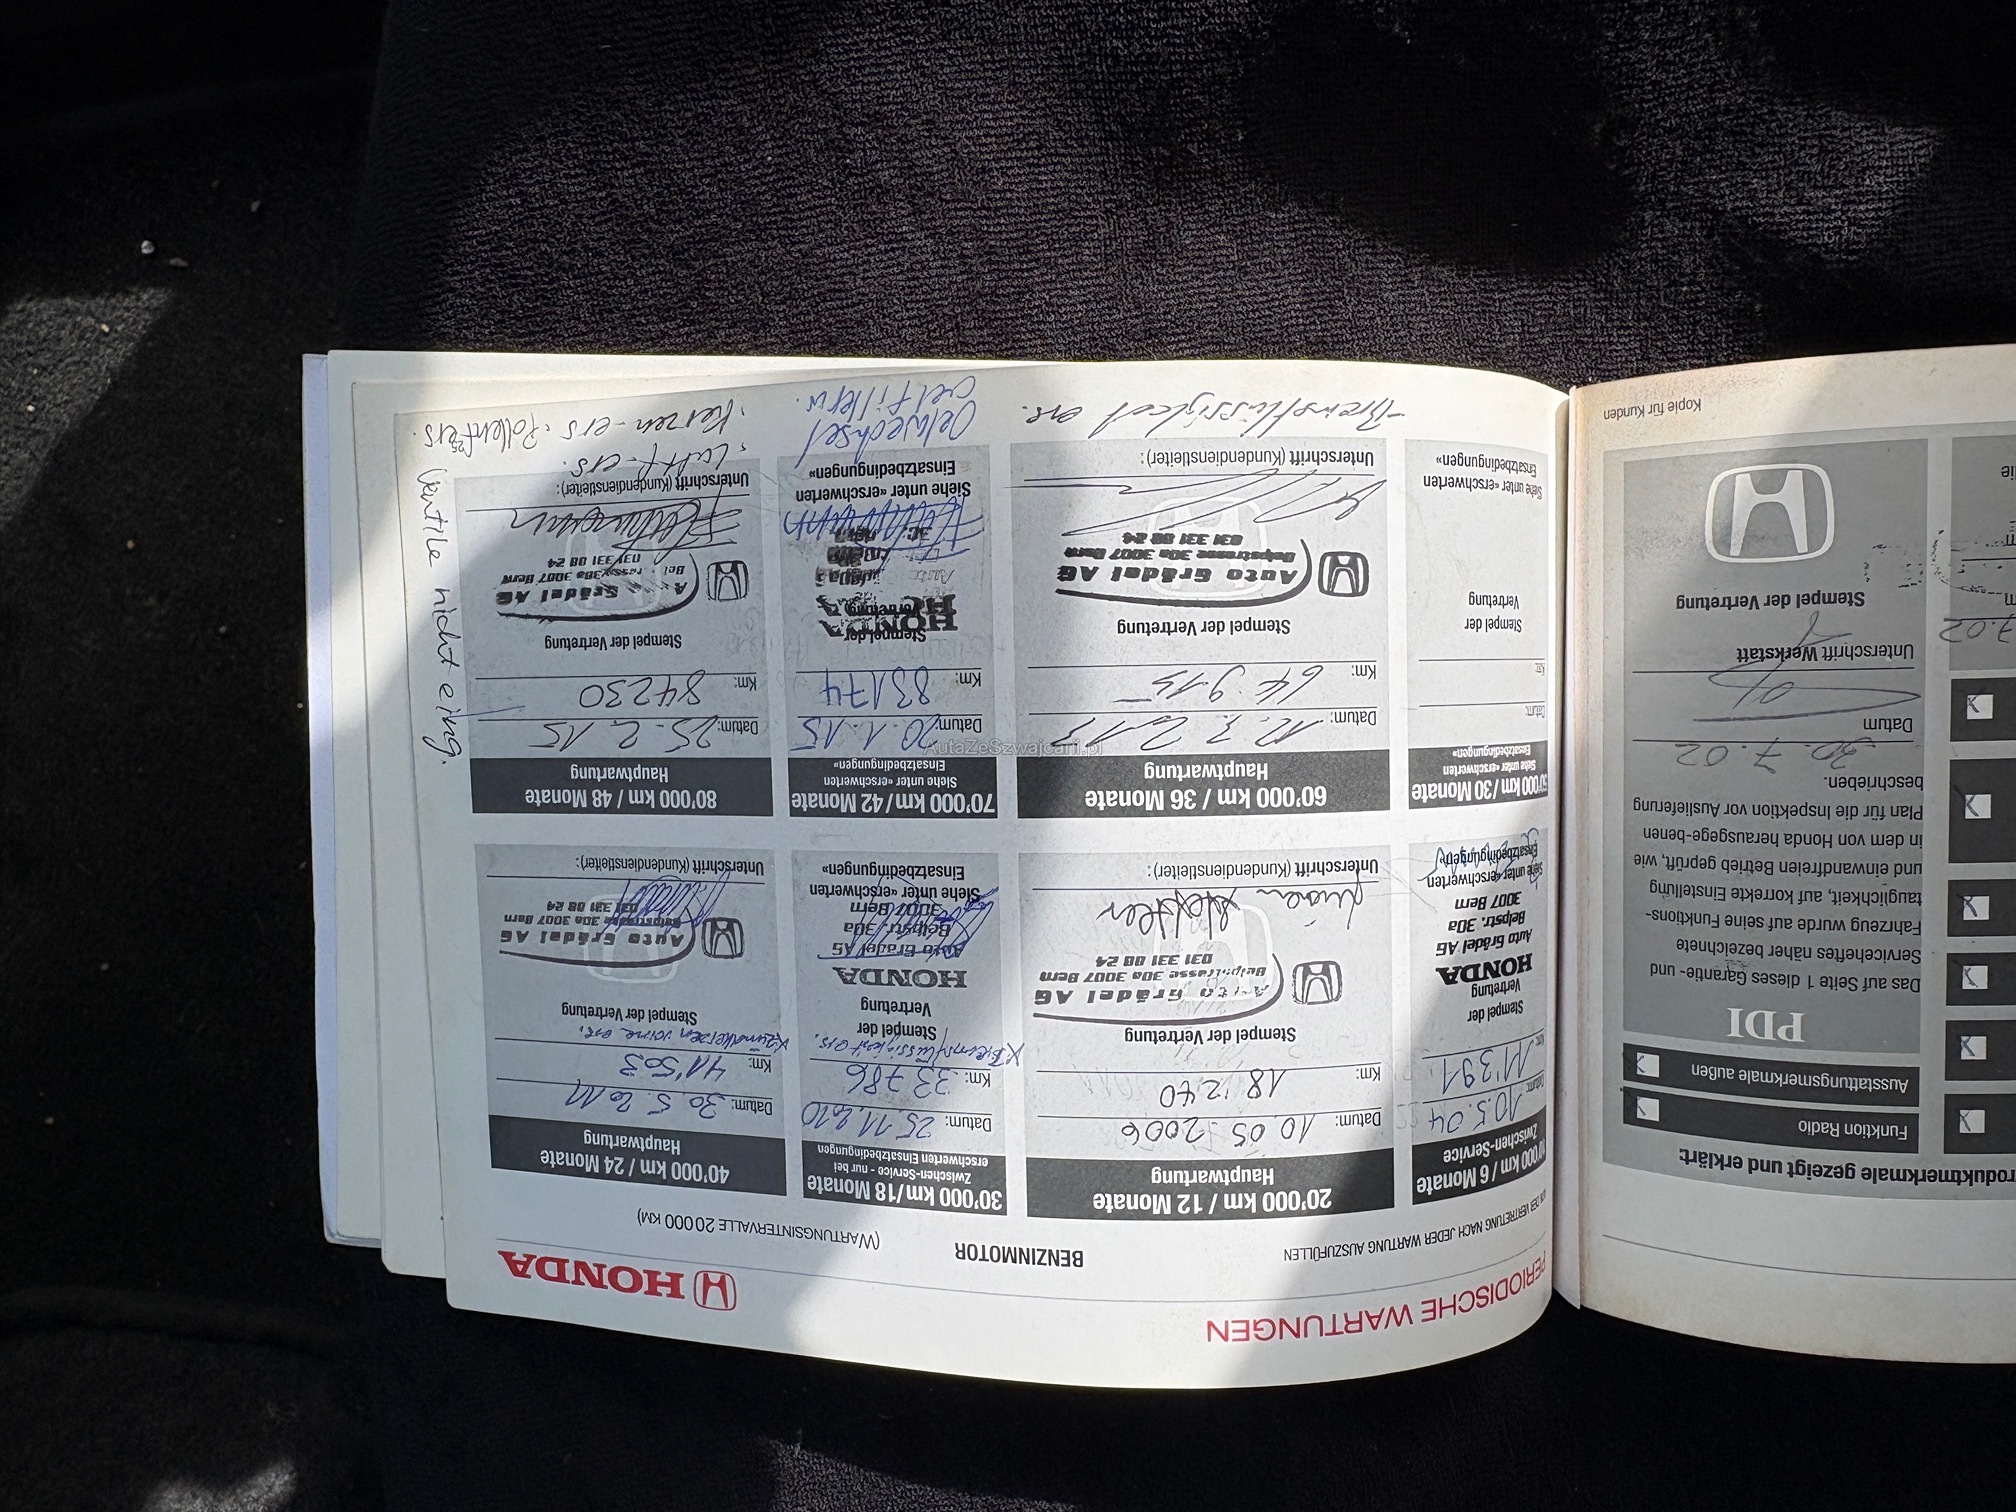 Produktmerkmale gezeigt und erklärt:
Funktion Radio
Ausstattungsmerkmale außen
PDI
Das auf Seite 1 dieses Garantie- und
Serviceheftes näher bezeichnete
Fahrzeug wurde auf seine Funktions-
tauglichkeit, auf korrekte Einstellung
und einwandfreien Betrieb geprüft, wie
in dem von Honda herausgegebe-benen
Plan für die Inspektion vor Auslieferung
beschrieben.
30.7.02
Datum
Unterschrift Werkstatt
Stempel der Vertretung
Kopie für Kunden
7.02
PERIODISCHE WARTUNGEN
HONDA
VON DER VERTRETUNG NACH JEDER WARTUNG AUSZUFÜLLEN
BENZINMOTOR
(WARTUNGSINTERVALLE 20000 KM)
10'000 km / 6 Monate
Zwischen-Service
Datum: 10.5.04
Km: 11'391
Stempel der
Vertretung
HONDA
Auto Grädel AG
Belpstr. 30a
3007 Bern
Siehe unter «erschwerten
Einsatzbedingungen»
20'000 km / 12 Monate
Hauptwartung
Datum: 10.05.2006
Km: 18'240
Stempel der Vertretung
Auto Grädel AG
Belpstrasse 30a 3007 Bern
031 331 08 24
Unterschrift (Kundendienstleiter):
30'000 km/18 Monate
Zwischen-Service - nur bei
erschwerten Einsatzbedingungen
Datum: 25.11.2010
Km: 33786
x Bremsflüssigkeit ers.
Stempel der
Vertretung
HONDA
Auto Grädel AG
Belpstr. 30a
3007 Bern
Siehe unter «erschwerten
Einsatzbedingungen»
40'000 km / 24 Monate
Hauptwartung
Datum: 30.5.2011
Km: 41'503
x Zündkerzen vorne ers.
Stempel der Vertretung
Auto Grädel AG
Belpstrasse 30a 3007 Bern
031 331 08 24
Unterschrift (Kundendienstleiter):
50'000 km/30 Monate
Siehe unter «erschwerten
Einsatzbedingungen»
Datum:
Km:
Stempel der
Vertretung
Siehe unter «erschwerten
Einsatzbedingungen»
60'000 km / 36 Monate
Hauptwartung
Datum: 12.7.2013
Km: 64'915
Stempel der Vertretung
Auto Grädel AG
Belpstrasse 30a 3007 Bern
031 331 08 24
Unterschrift (Kundendienstleiter):
- Bremsflüssigkeit ers.
70'000 km/42 Monate
Siehe unter «erschwerten
Einsatzbedingungen»
Datum: 20.1.15
Km: 83174
Stempel der
Vertretung
HONDA
Siehe unter «erschwerten
Einsatzbedingungen»
Oelwechsel
Oelfilter w.
80'000 km / 48 Monate
Hauptwartung
Datum: 25.2.15
Km: 84230
Stempel der Vertretung
Auto Grädel AG
Belpstrasse 30a 3007 Bern
031 331 08 24
Unterschrift (Kundendienstleiter):
· Luftf- ers.
· Kerzen- ers · Pollenf ers.
Ventile nicht eing.
AutaZeSzwajcarii.pl